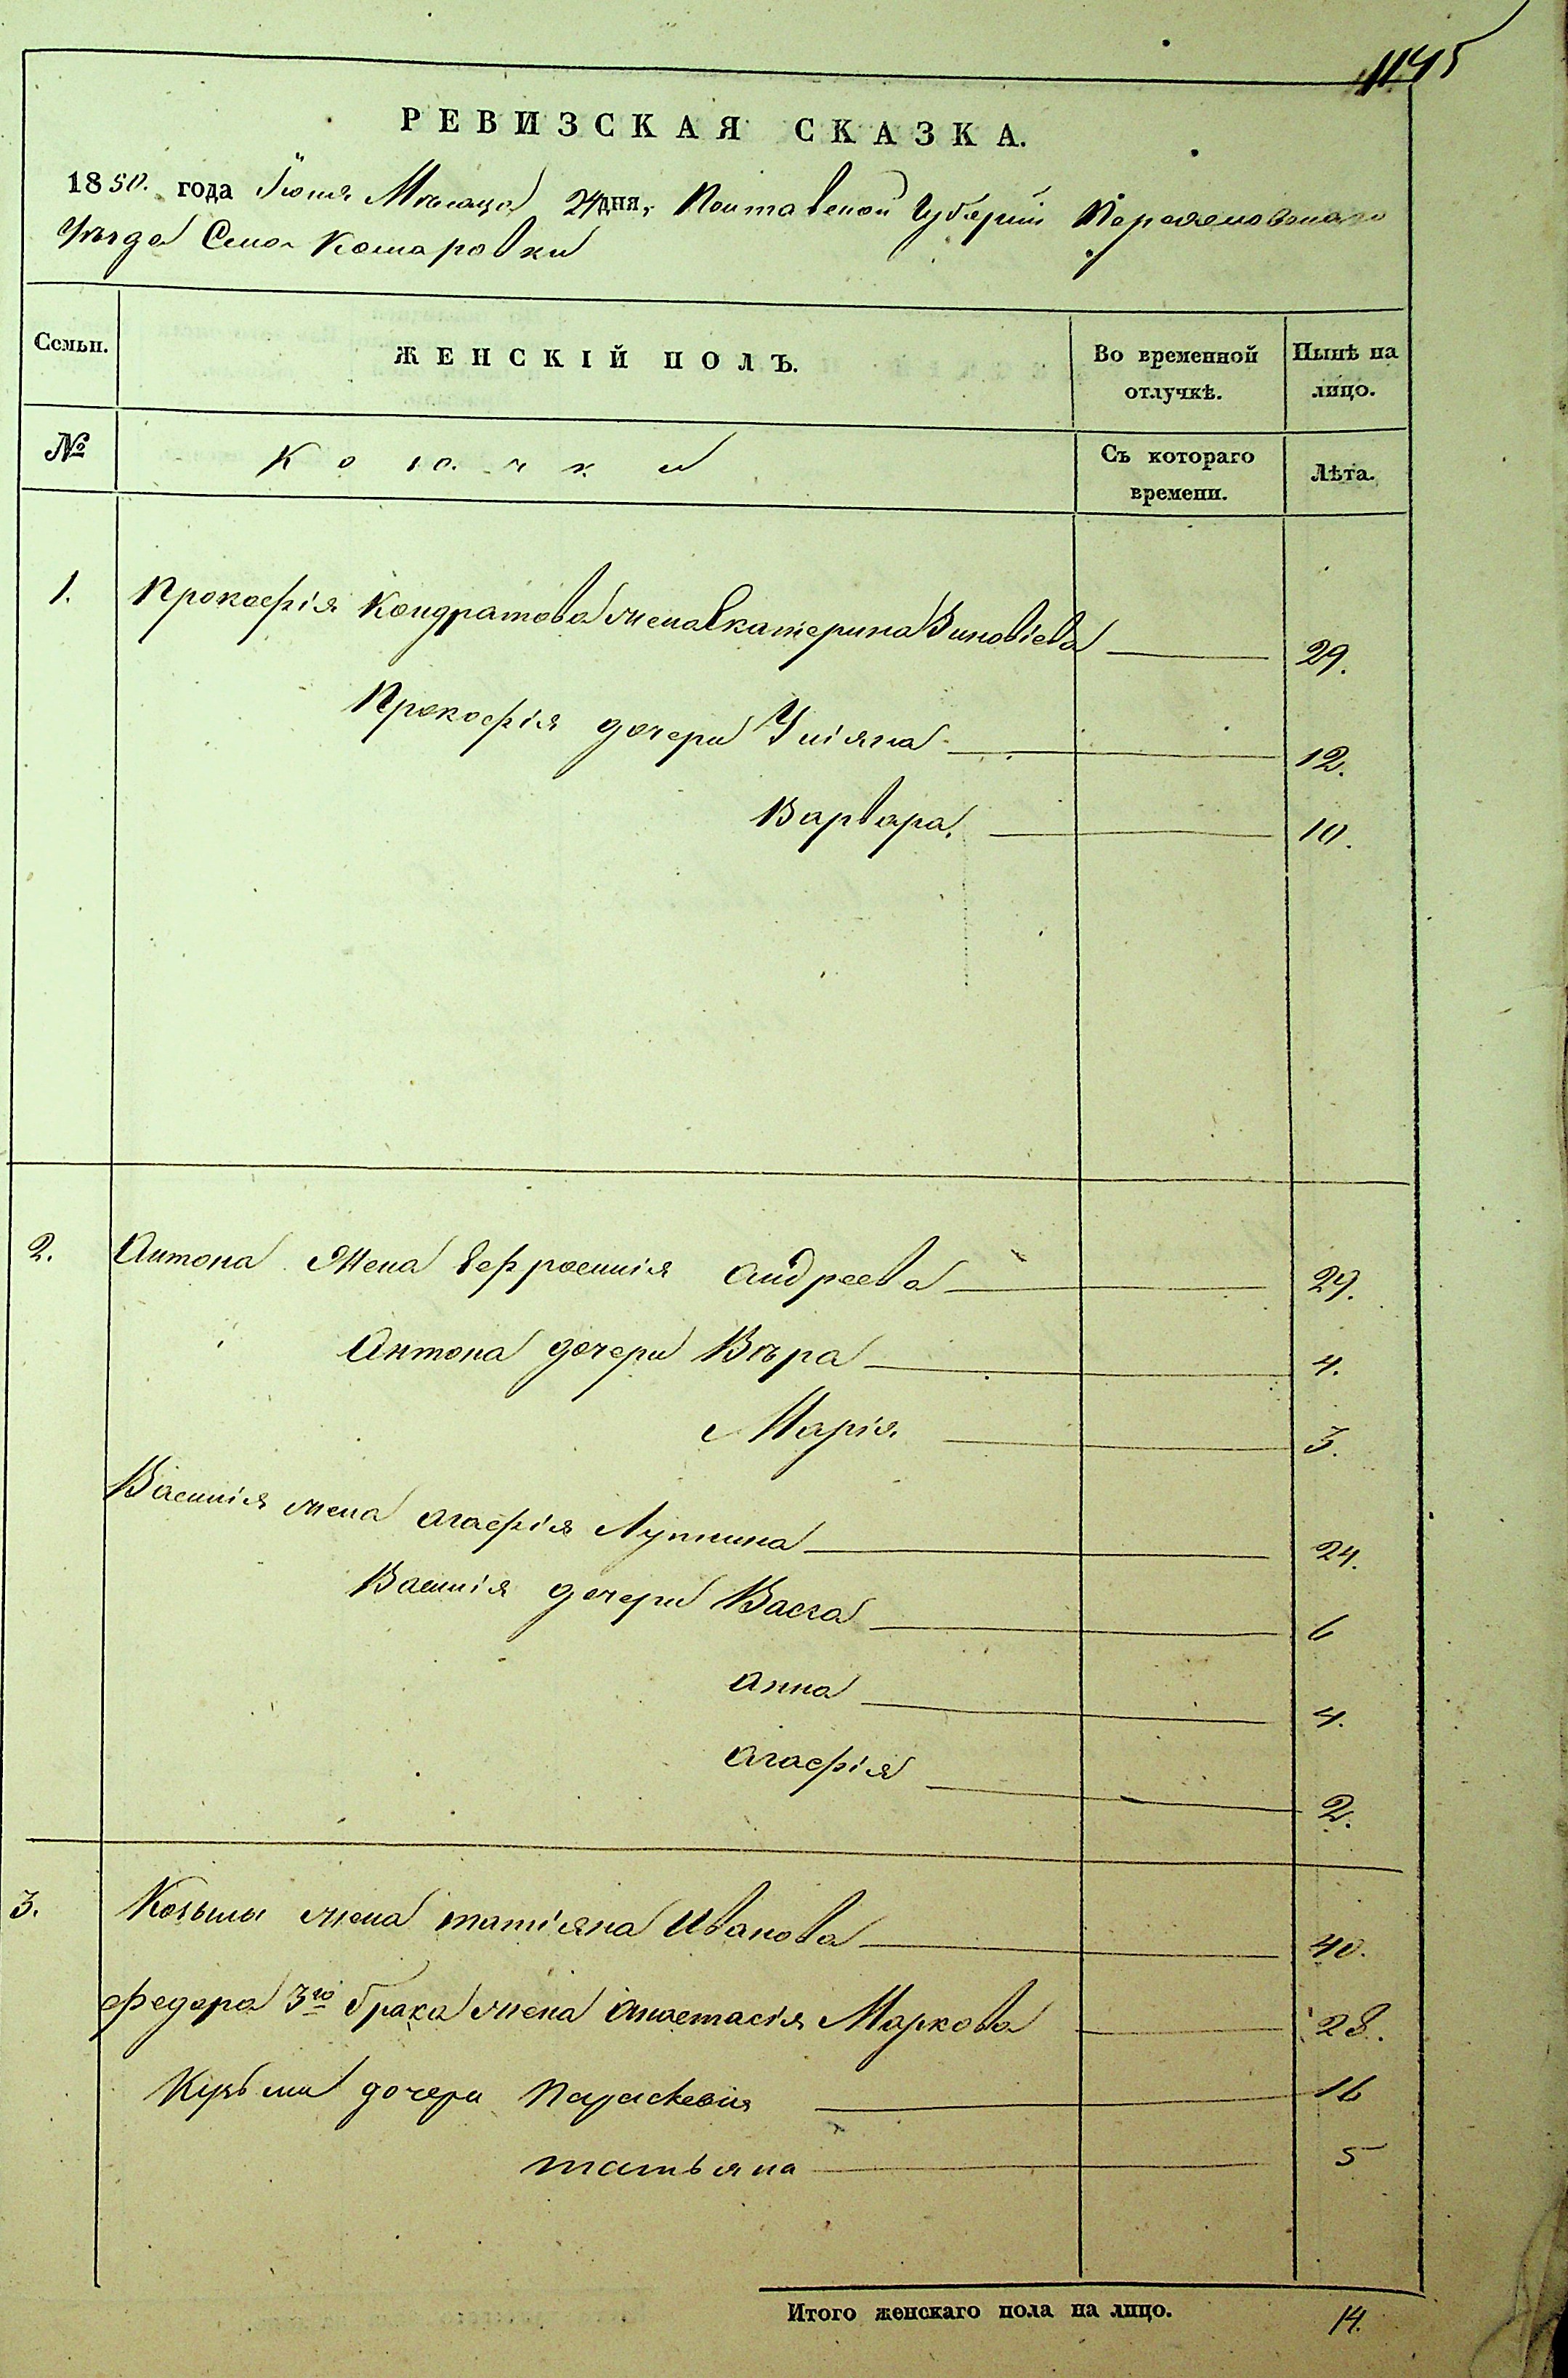 1145
РЕВИЗСКАЯ СКАЗКА.
1850. года Іюня Мѣсяца 24 дня, Полтавской Губерніи Переяславскаго
Уѣзда Села Комаровки
Семьи.
ЖЕНСКІЙ ПОЛЪ.
Во временной отлучкѣ.
Нынѣ на лицо.
№
Козачки
Съ котораго времени.
Лѣта.
1. Прокофія Кондратова жена Екатерина Зиновіева 29.
Прокофія дочери Уліяна 12.
Варвара. 10.
2. Антона Жена Ефросинія Андреева 29.
Антона дочери Вѣра 4.
Марія 3.
Василія жена Агафія Лукина 24.
Василія дочери Васса 6
Анна 4.
Агафія 2.
3. Козьмы жена татіяна Иванова 40.
Федора 3го брака жена Анастасія Маркова 28.
Кузьми дочери Параскевия 16
татьяна 5
Итого женскаго пола на лицо. 14.